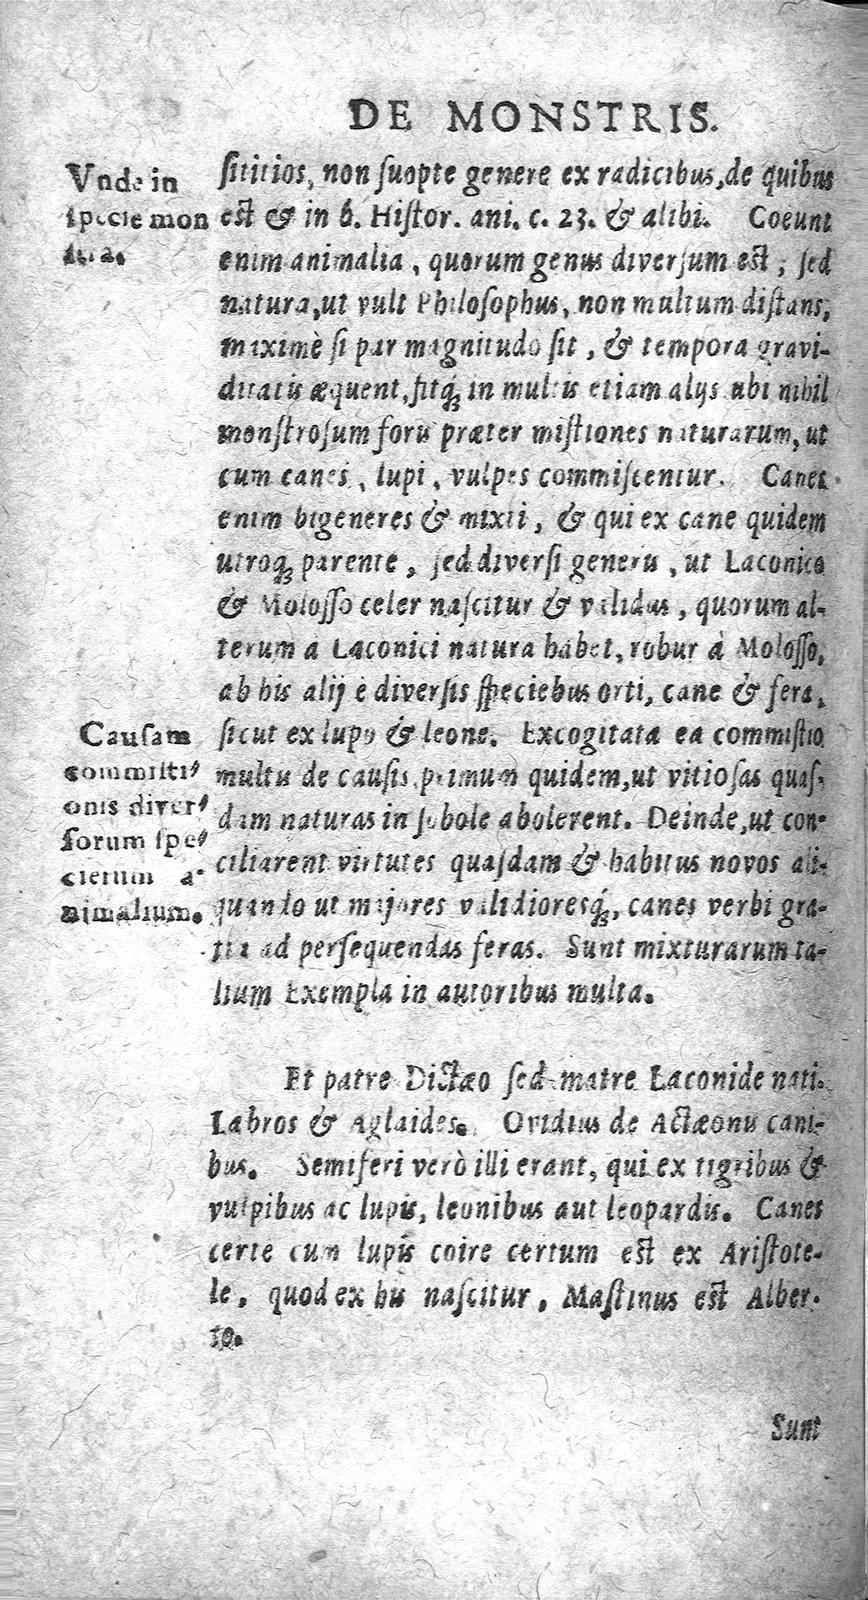 DE MONSTRIS.
Vnde in
specie mon
stra.
ſititios, non ſuopte genere ex radicibus, de quibus
eſt & in 6. Hiſtor. ani. c. 23. & alibi. Coeunt
enim animalia, quorum genus diverſum eſt, ſed
natura, ut vult Philoſophus, non multum diſtans,
maximè ſi par magnitudo ſit, & tempora gravi-
ditatis æquent, fitq́; in multis etiam alijs ubi nihil
monſtroſum foris præter miſtiones naturarum, ut
cum canes, lupi, vulpes commiſcentur. Canes
enim bigeneres & mixti, & qui ex cane quidem
utroq; parente, ſed diverſi generis, ut Laconico
& Moloſſo celer naſcitur & validus, quorum al-
terum a Laconici natura habet, robur à Moloſſo,
ab his alij è diverſis ſpeciebus orti, cane & fera,
ſicut ex lupo & leone. Excogitata ea commiſtio
multis de cauſis primum quidem, ut vitioſas quaſ-
dam naturas in ſobole abolerent. Deinde, ut con-
ciliarent virtutes quaſdam & habitus novos ali-
quando ut majores validioresq́;, canes verbi gra-
tia ad perſequendas feras. Sunt mixturarum ta-
lium Exempla in autoribus multa.
Cauſam
commiſti-
onis diver-
ſorum ſpe-
cierum a-
nimalium.
Et patre Dictæo ſed matre Laconide nati.
Labros & Aglaides. Ovidius de Actæonis cani-
bus. Semiferi verò illi erant, qui ex tigribus &
vulpibus ac lupis, leonibus aut leopardis. Canes
certe cum lupis coire certum eſt ex Ariſtote-
le, quod ex his naſcitur, Maſtinus eſt Alber-
to.
Sunt